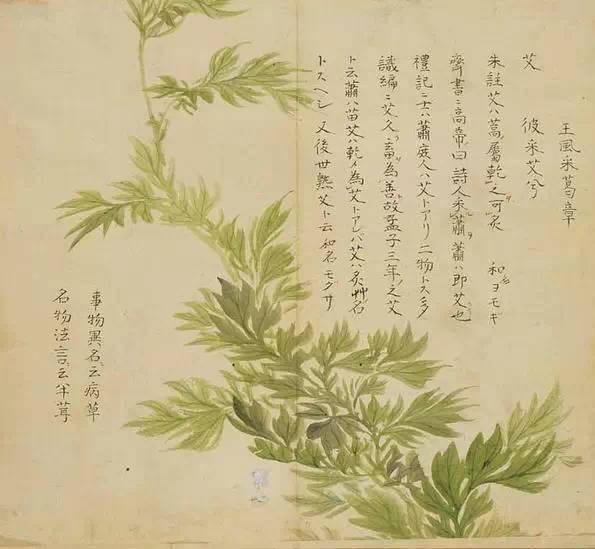 王風采葛章
艾　彼采艾兮
朱註艾ハ蒿屬乾之可灸　和ヨモギ
齊書ニ高帝曰詩人采蕭蕭ハ即艾也
禮記ニ士ハ蕭庶人ハ艾トアリ二物トスタ
識編ニ艾久畜為善故孟子三年之艾
ト云蕭ハ苗艾ハ乾メ為艾トアレバ艾ハ灸艸名
トスヘシ　又後世熟艾ト云和名モクサ
事物異名ニ云病草
名物法言ニ云半茸